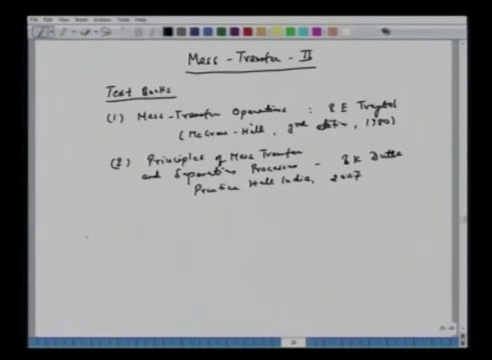 Mass - Transfer - II
Text Books
(1) Mass-Transfer Operations : R E Treybal
(McGraw-Hill, 3rd edition, 1980)
(2) Principles of Mass Transfer
and Separation Processes - B K Dutta
Prentice Hall India, 2007